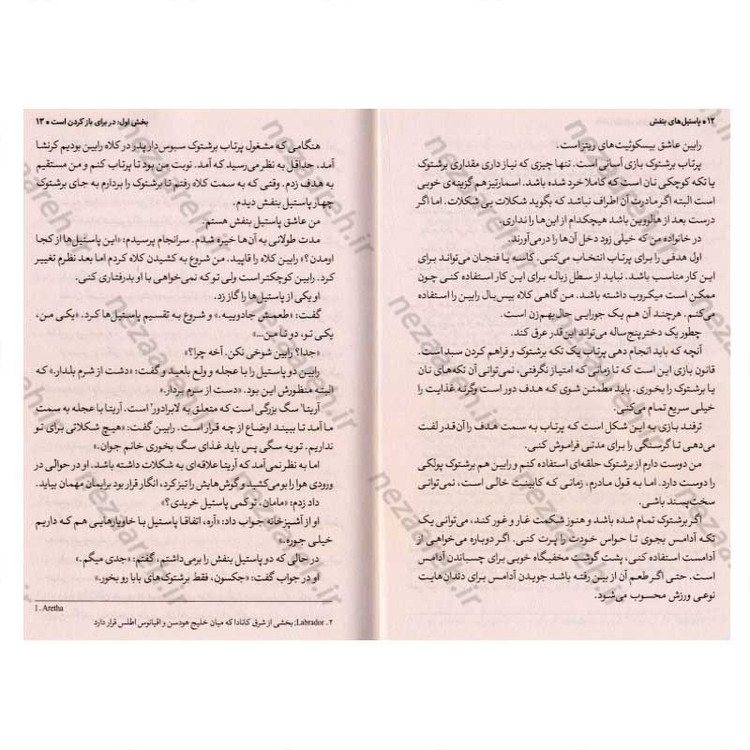 ۱۲ • پاستیل‌های بنفش
رابین عاشق بیسکوئیت‌های ریتز است.
پرتاب برشتوک بازی آسانی است. تنها چیزی که نیاز داری مقداری برشتوک
یا تکه کوچکی نان است که کاملا خرد شده باشد. اسمارتیز هم گزینه‌ی خوبی
است البته اگر مادرت آن اطراف نباشد که بگوید شکلات بی شکلات. اما اگر
درست بعد از هالووین باشد هیچکدام از این‌ها را نداری.
در خانواده من که خیلی زود دخل آن‌ها را درمی‌آورند.
اول هدفی را برای پرتاب انتخاب می‌کنی. کاسه یا فنجان می‌تواند برای
این کار مناسب باشد. نباید از سطل زباله برای این کار استفاده کنی چون
ممکن است میکروب داشته باشد. من گاهی کلاه بیس‌بال رابین را استفاده
می‌کنم. هرچند آن هم یک جورایی حال بهم‌زن است.
چطور یک دختر پنج‌ساله می‌تواند این قدر عرق کند.
آنچه که باید انجام دهی پرتاب یک تکه برشتوک و فراهم کردن سبد است.
قانون بازی این است که تا زمانی که امتیاز نگرفتی، نمی‌توانی آن تکه‌های نان
یا برشتوک را بخوری. باید مطمئن شوی که هدف دور است وگرنه غذایت را
خیلی سریع تمام می‌کنی.
ترفند بازی به این شکل است که پرتاب به سمت هدف را آن‌قدر لفت
می‌دهی تا گرسنگی را برای مدتی فراموش کنی.
من دوست دارم از برشتوک حلقه‌ای استفاده کنم و رابین هم برشتوک پولکی
را دوست دارد. اما به قول مادرم، زمانی که کابینت خالی است، نمی‌توانی
سخت‌پسند باشی.
اگر برشتوک تمام شده باشد و هنوز شکمت غار و غور کند، می‌توانی یک
تکه آدامس بجوی تا حواس خودت را پرت کنی. اگر دوباره می‌خواهی از
آدامست استفاده کنی، پشت گوشت مخفیگاه خوبی برای چسباندن آدامس
است. حتی اگر طعم آن از بین رفته باشد جویدن آدامس برای دندان‌هایت
نوعی ورزش محسوب می‌شود.
بخش اول: در برای باز کردن است • ۱۳
هنگامی که مشغول پرتاب برشتوک سبوس‌دار پدر در کلاه رابین بودیم کرنشا
آمد، حداقل به نظر می‌رسید که آمد. نوبت من بود تا پرتاب کنم و من مستقیم
به هدف زدم. وقتی که به سمت کلاه رفتم تا برشتوک را بردارم به جای برشتوک
چهار پاستیل بنفش دیدم.
من عاشق پاستیل بنفش هستم.
مدت طولانی به آن‌ها خیره شدم. سرانجام پرسیدم: «این پاستیل‌ها از کجا
اومدن؟» رابین کلاه را قاپید. من شروع به کشیدن کلاه کردم اما بعد نظرم تغییر
کرد. رابین کوچکتر است ولی تو که نمی‌خواهی با او بدرفتاری کنی.
او یکی از پاستیل‌ها را گاز زد.
گفت: «طعمش جادوییه.» و شروع به تقسیم پاستیل‌ها کرد. «یکی من،
یکی تو، دو تا من...»
«جدا؟ رابین شوخی نکن. آخه چرا؟»
رابین دو پاستیل را با عجله و ولع بلعید و گفت: «دشت از شرم بلدار.» که
البته منظورش این بود. «دست از سرم بردار.»
آریتا۱ سگ بزرگی است که متعلق به لابرادور۲ است. آریتا با عجله به سمت
ما آمد تا ببیند اوضاع از چه قرار است. رابین گفت: «هیچ شکلاتی برای تو
نداریم. تو یه سگی پس باید غذای سگ بخوری خانم جوان.»
اما به نظر نمی‌آمد که آریتا علاقه‌ای به شکلات داشته باشد. او در حوالی در
ورودی هوا را بو می‌کشید و گوش‌هایش را تیز کرد، انگار قرار بود برایمان مهمان بیاید.
داد زدم: «مامان، تو کمی پاستیل خریدی؟»
او از آشپزخانه جواب داد: «آره، اتفاقا پاستیل با خاویارهایی هم که داریم
خیلی جوره.»
در حالی که دو پاستیل بنفش را برمی‌داشتم، گفتم: «جدی میگم.»
او در جواب گفت: «جکسون، فقط برشتوک‌های بابا رو بخور.»
1. Aretha
۲. Labrador: بخشی از شرق کانادا که میان خلیج هودسن و اقیانوس اطلس قرار دارد
nezaareh.ir